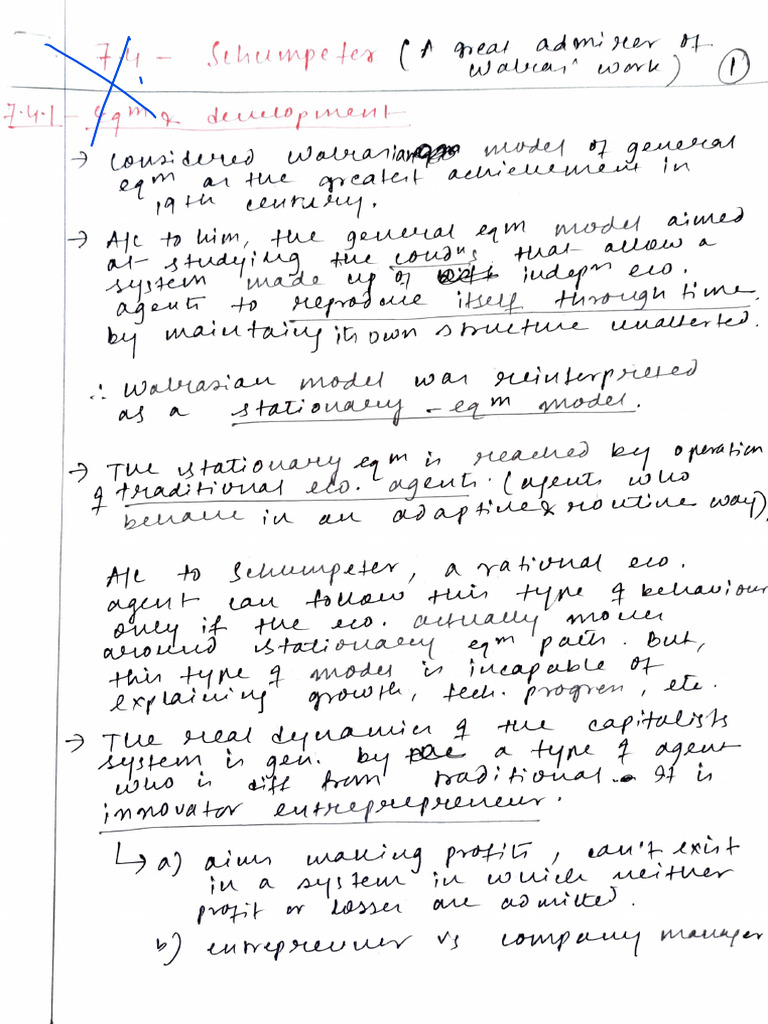 7.4 - Schumpeter (A great admirer of
Walras' work) 1
7.4.1 - eqm & development
→ Considered Walrasian model of general
eqm as the greatest achievement in
19th century.
→ A/c to him, the general eqm model aimed
at studying the condns that allow a
system made up of indepn eco.
agents to reproduce itself through time
by maintaing its own structure unalterted.
∴ Walrasian model was reinterpreted
as a stationary - eqm model.
→ The stationary eqm is reached by operation
of traditional eco. agents. (agents who
behave in an adaptive & routine way).
A/c to Schumpeter, a rational eco.
agent can follow this type of behaviour
only if the eco. actually moves
around stationary eqm path. But,
this type of model is incapable of
explaining growth, tech. progress, etc.
→ The real dynamics of the capitalists
system is gen. by a type of agent
who is diff from traditional. It is
innovator entreprepreneur.
↳ a) aims making profits, can't exist
in a system in which neither
profit or losses are admitted.
b) entrepreuner vs company manager